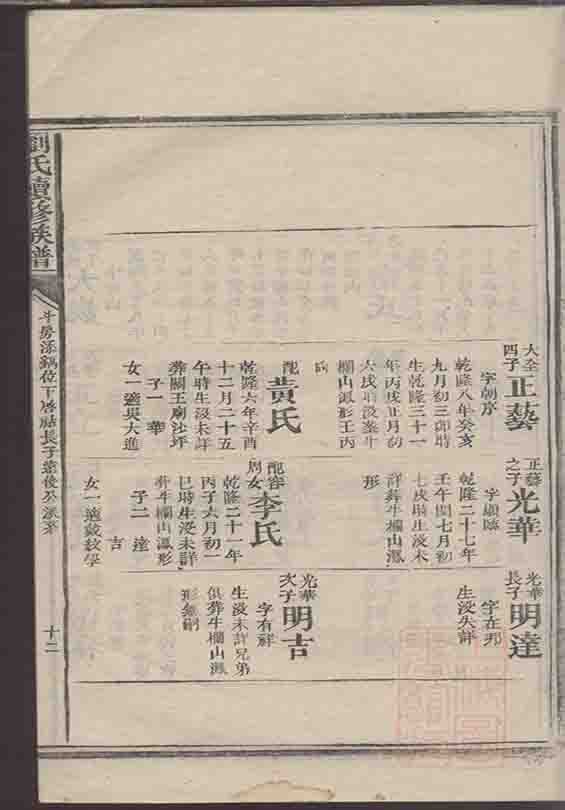 劉氏續修族譜
十二
大全四子
正藝
字朝序
乾隆八年癸亥
九月初三卯時
生乾隆三十一
年丙戌正月初
六戌時没葬牛
欄山鳳形壬丙
向
配
黄氏
乾隆六年辛酉
十二月二十五
午時生没未詳
葬關王廟沙坪
子一 華
女一適吳大進
正藝之子
光華
字顯臨
乾隆二十七年
壬午閏七月初
七戌時生没未
詳葬牛欄山鳳
形
配容周女
李氏
乾隆二十一年
丙子六月初一
巳時生没未詳
葬牛欄山鳳形
子二 達
吉
女一適戴教學
光華長子
明達
字在邦
生没失詳
光華次子
明吉
字有祥
生没未詳兄弟
俱葬牛欄山鳳
形無嗣